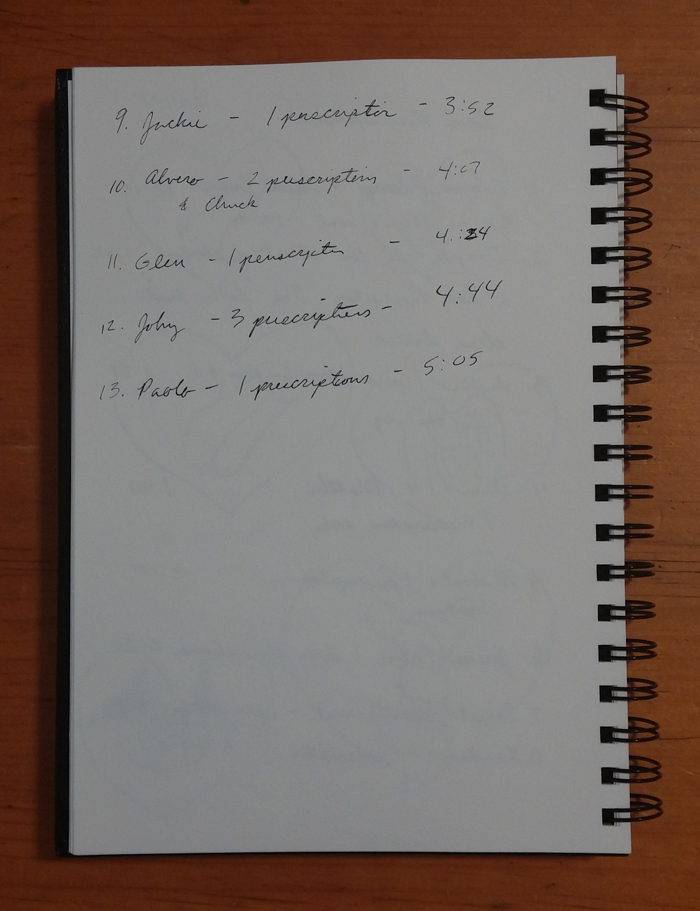 9. Jackie - 1 perscription - 3:52
10. Alvero - 2 prescriptions - 4:07
& Chuck
11. Glen - 1 perscription - 4:24
12. Johy - 3 prescriptions - 4:44
13. Paolo - 1 prescriptions - 5:05